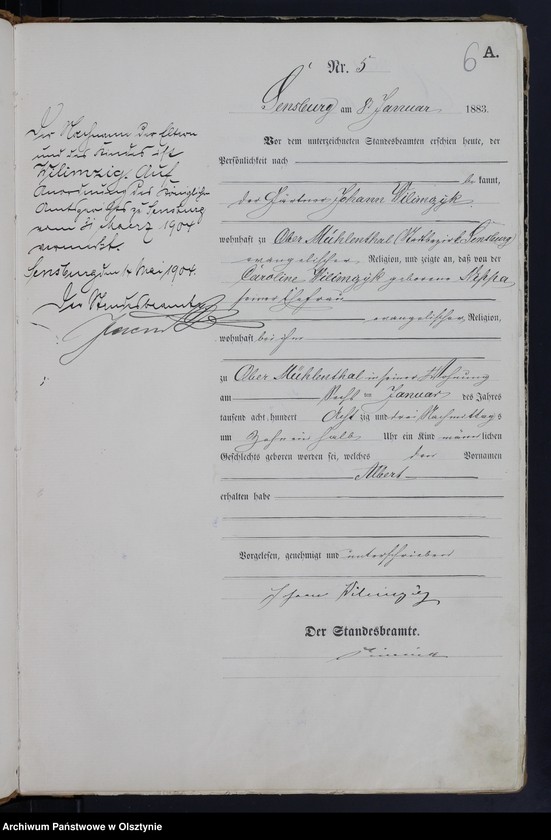 6 A.
Nr. 5
Sensburg am 8. Januar 1883.
Vor dem unterzeichneten Standesbeamten erschien heute, der
Persönlichkeit nach
be kannt,
der Gärtner Johann Wilimzyk
wohnhaft zu Ober Mühlenthal (Sensburg)
evangelischer Religion, und zeigte an, daß von der
Caroline Wilimzyk geborene
seiner Ehefrau
evangelischer Religion,
wohnhaft bei ihm
zu Ober Mühlenthal in seiner Wohnung
am Januar des Jahres
tausend acht hundert Acht zig und drei Nachmittags
um Zehn ein halb Uhr ein Kind männlichen
Geschlechts geboren worden sei, welches den Vornamen
Albert
erhalten habe
Vorgelesen, genehmigt und unterschrieben
Johann Wilimzig
Der Standesbeamte.
Der Nachname der Eltern
und des Kindes ist
Wilimzig. Auf
Anordnung des Königlichen
Amtsgerichts zu Sensburg
vom 31 Maerz 1904
vermerkt.
Sensburg den 4. Mai 1904.
Der Standesbeamte
Archiwum Państwowe w Olsztynie